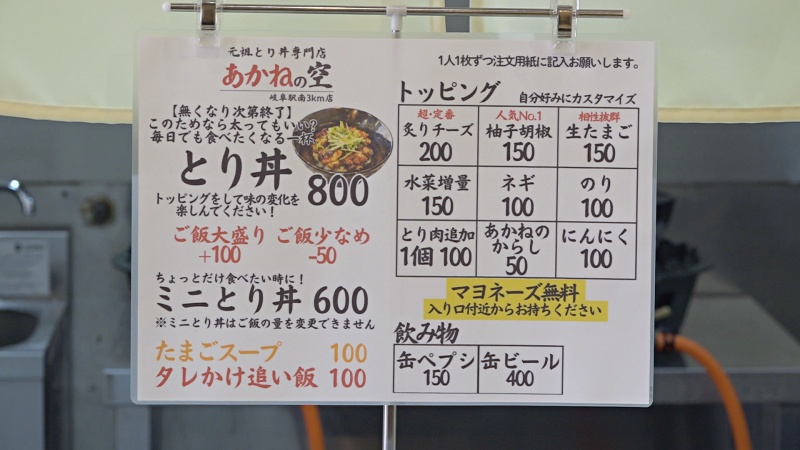 元祖とり丼専門店
あかねの空
岐阜駅南3km店
【無くなり次第終了】
このためなら太ってもいい?
毎日でも食べたくなる一杯
とり丼
800
トッピングをして味の変化を
楽しんでください!
ご飯大盛り ご飯少なめ
+100 -50
ちょっとだけ食べたい時に!
ミニとり丼 600
※ミニとり丼はご飯の量を変更できません
たまごスープ 100
タレかけ追い飯 100
1人1枚ずつ注文用紙に記入お願いします。
トッピング 自分好みにカスタマイズ
超・定番 人気No.1 相性抜群
炙りチーズ 柚子胡椒 生たまご
200 150 150
水菜増量 ネギ のり
150 100 100
とり肉追加 あかねのからし にんにく
1個 100 50 100
マヨネーズ無料
入り口付近からお持ちください
飲み物
缶ペプシ 缶ビール
150 400